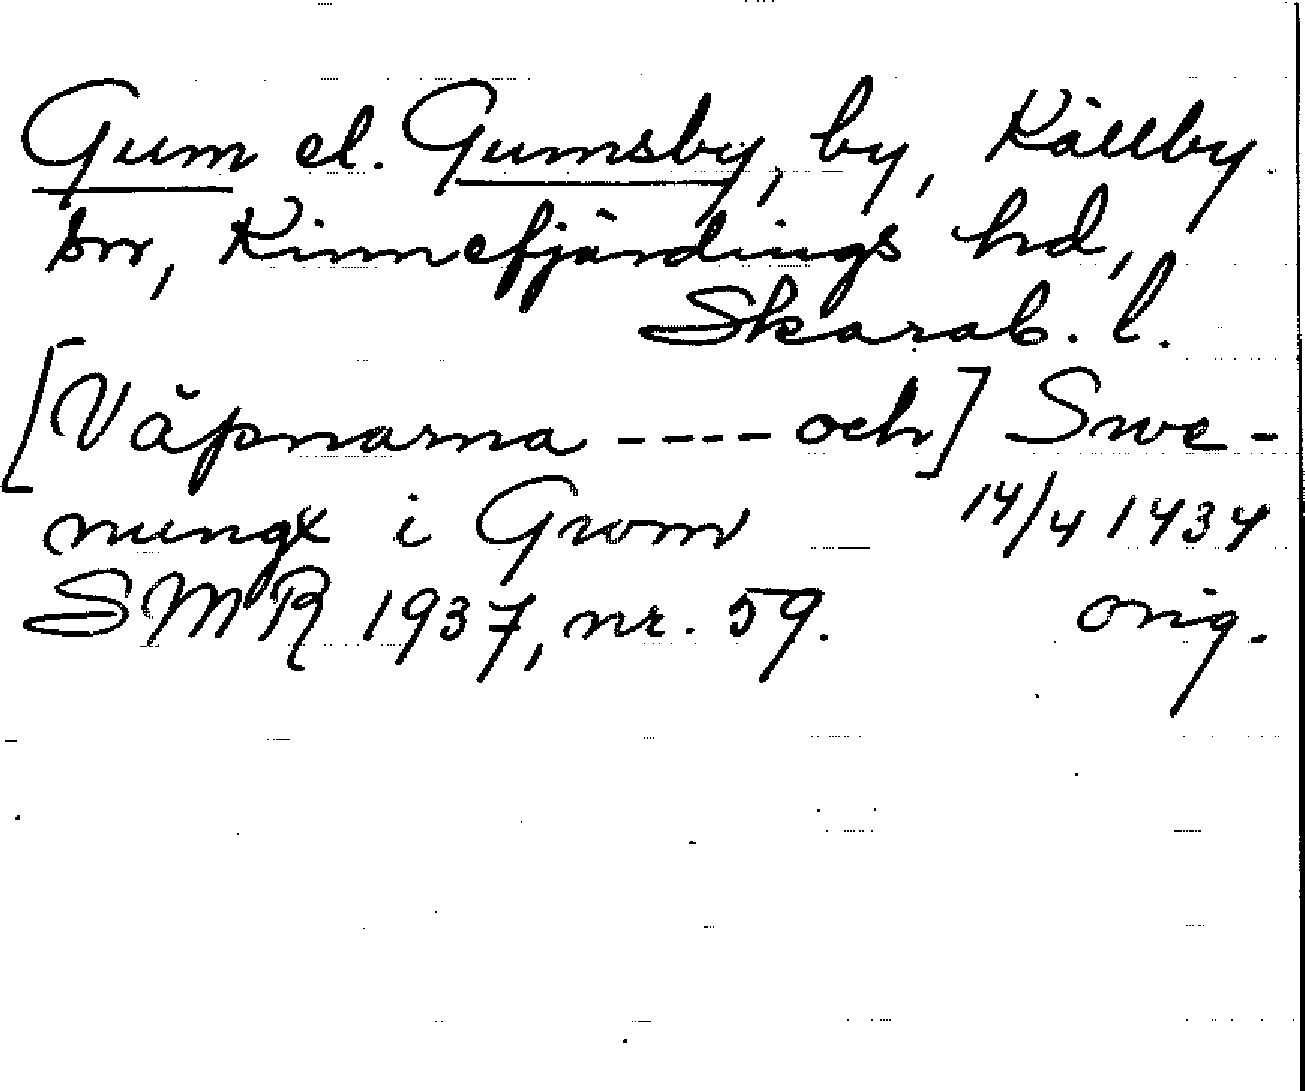 Gum el. Gumsby, by, Källby
sn, Kinnefjärdings hd,
Skarab. l.
[Väpnarna ---- och] Swe-
nungx i Gwom 14/4 1434
SMR 1937, nr. 59. orig.